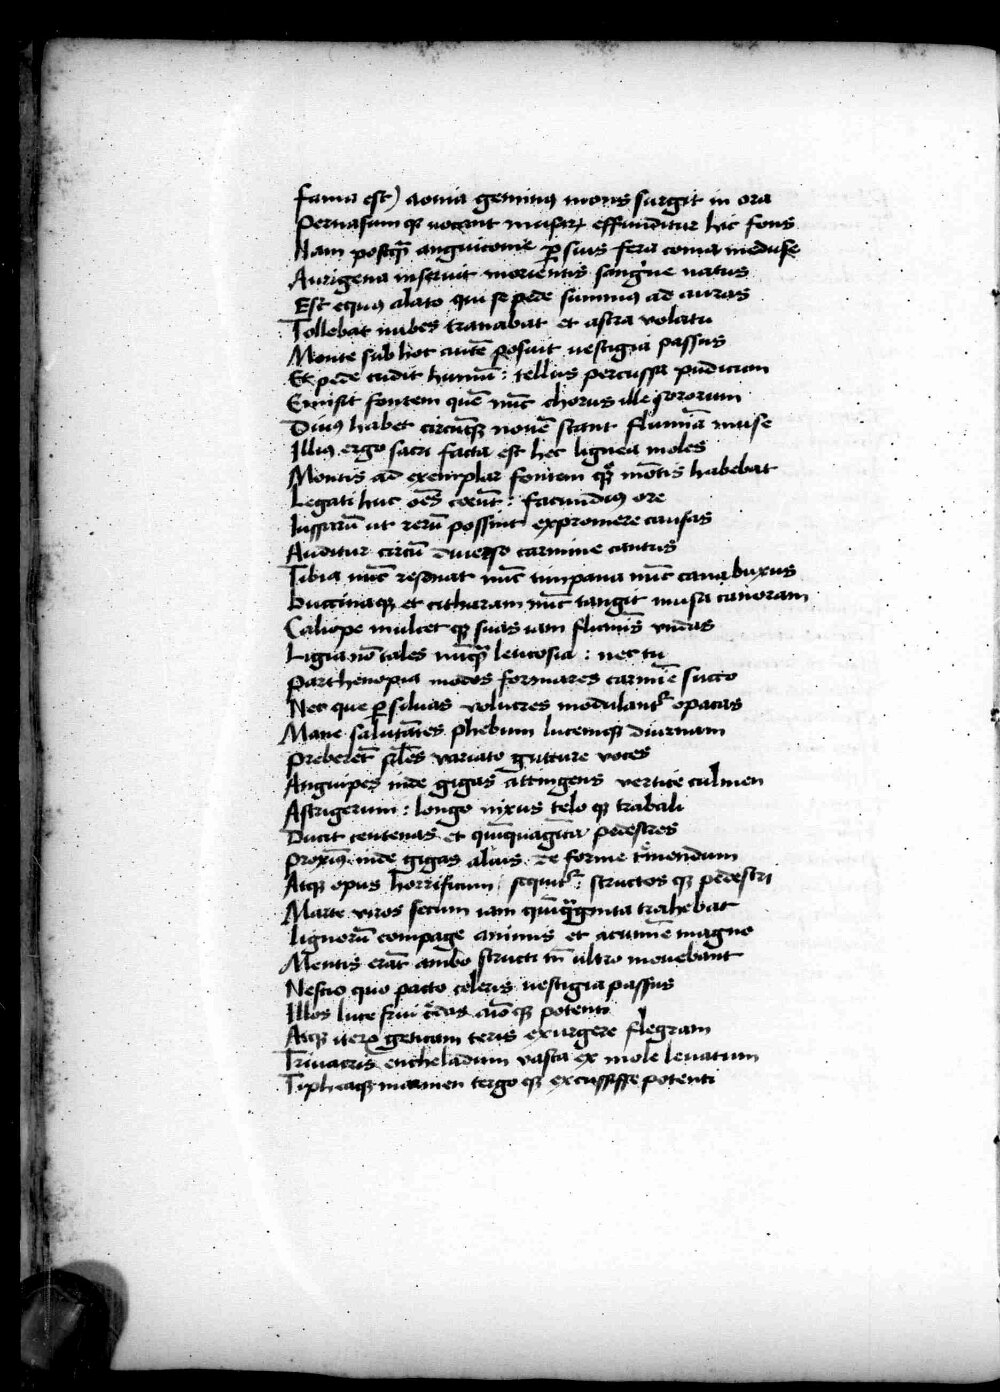 Fama est) aonia geminus mons surgit in ora
Pernasum qꝫ uocant musarꝝ effunditur hic fons
Nam postqᷓ anguicome ꝑ suas fera coma meduse
Aurigena inseruit morientis sanguine natus
Est equꝰ alato qui se pede summus ad auras
Tollebat nubes tranabat et astra volatu
Monte sub hoc autē posuit uestigia passus
Et pede cudit humū : tellus percussa pudicum
Emisit fontem quē nūc chorus ille sororum
Diuꝰ habet circūqꝫ nouē stant flumīa muse
Illiꝰ ergo sacri facta est hec lignea moles
Montis ad exemplar fontem qꝫ mōtis habebat
Legati huc oēs coeūt : facundius ore
Iussarū ut rerū possint expromere causas
Auditur circū diuerso carmine cantus
Tibia nūc resonat nūc timpana nūc caua buxus
Buccinaqꝫ et citharam nūc tangit musa canoram
Caliope mulcet qꝫ suas iam flumīs vndas
Ligia nō tales nūqᷓ leucosia : nec tu
Parthenopia modos formares carmīe succo
Nec que ꝑ siluas volucres modulantᷣ opacas
Mane salutātes phebum lucemqꝫ diurnam
Preberēt sīles variato gutture voces
Anguipes inde gigas attingens vertice culmen
Astrigerum : longo nixus telo qꝫ trabali
Ducit centenas et quīquagīta pedestres
Proximꝰ inde gigas alius de forme tᷣmendum
Atqꝫ opus horrificum : sequitᷣ : structos qꝫ pedestri
Marte viros secum iam quīgᷓginta trahebat
lignorū compage animis et acumīe magno
Mentis erāt ambo structi tn̄ ultro mouebant
Nescio quo pacto celeris uestigia passus
Illos luce frui c̄das aīoqꝫ potenti
Atqꝫ iterꝫ genitam teris exurgere flegram
Trinacris encheladum vasta ex mole leuatum
Tipheaqꝫ inarimen tergo qꝫ excussisse potenti